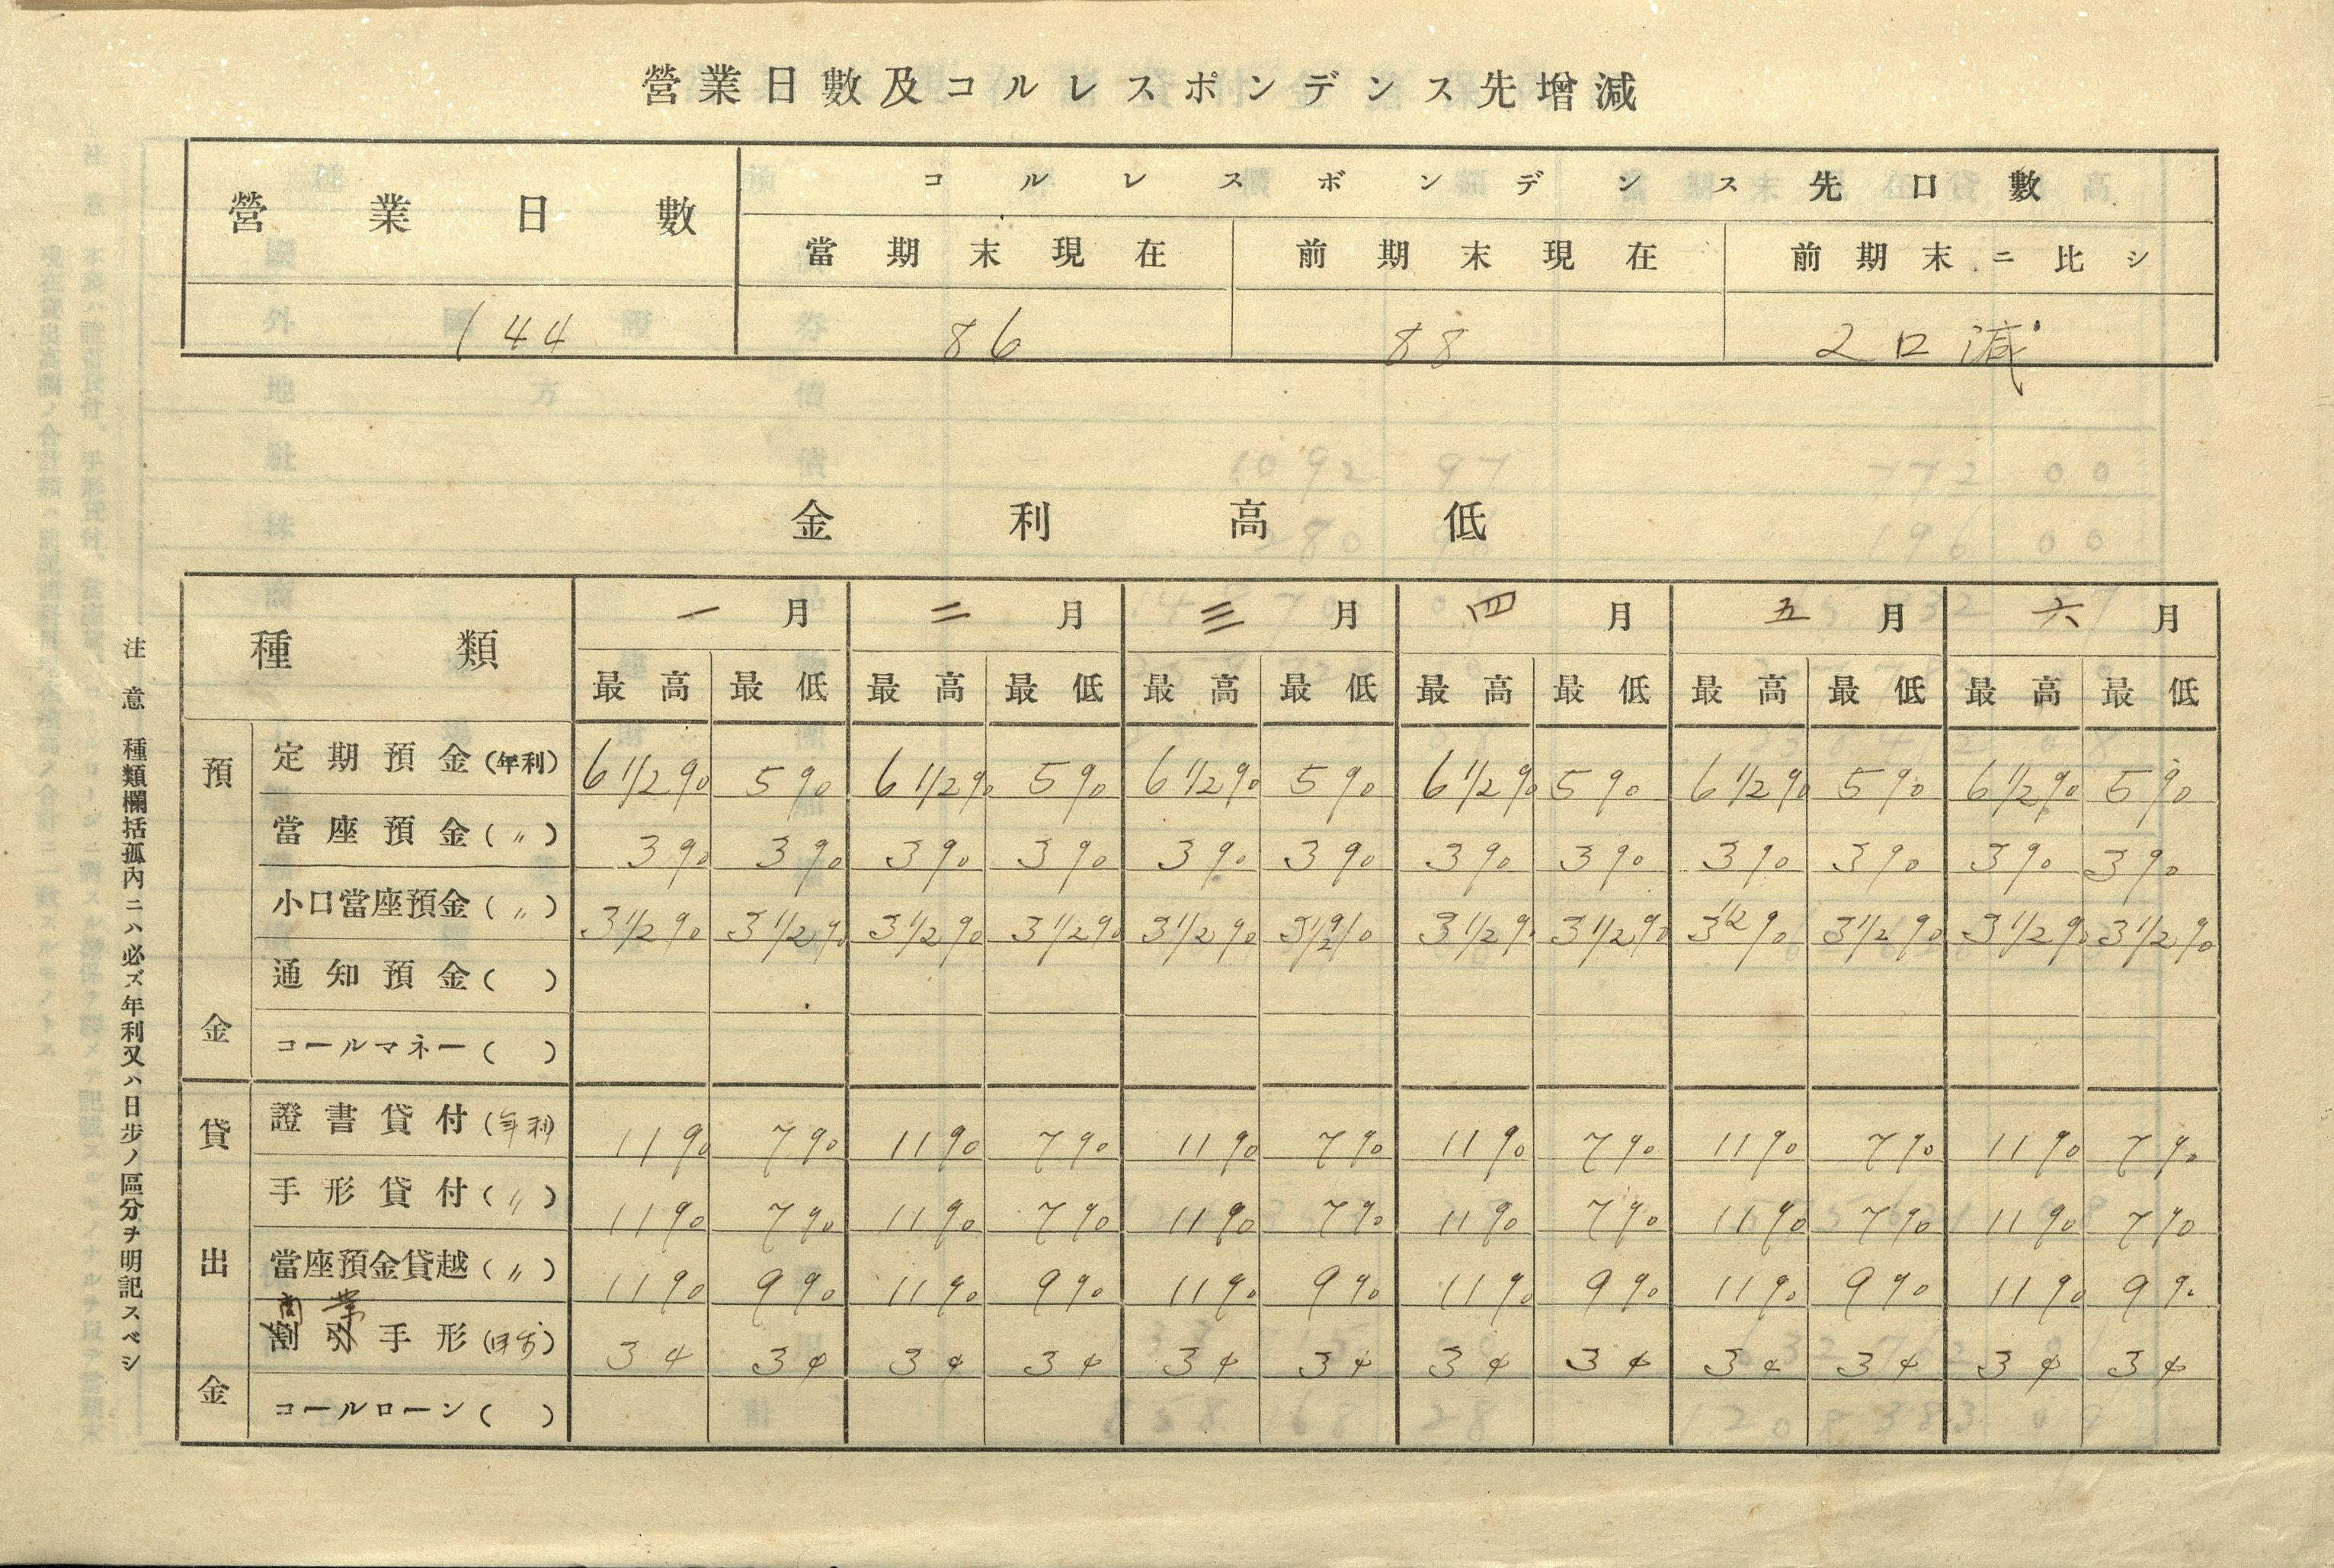 營業日數及コルレスポンデンス先增減
營業日數 コルレスポンデンス先口數
當期末現在 前期末現在 前期末ニ比シ
144 86 88 2口減
金利高低
種類 一月 二月 三月 四月 五月 六月
最高 最低 最高 最低 最高 最低 最高 最低 最高 最低 最高 最低
預金
定期預金(年利) 6 1/2% 5% 6 1/2% 5% 6 1/2% 5% 6 1/2% 5% 6 1/2% 5% 6 1/2% 5%
當座預金(〃) 3% 3% 3% 3% 3% 3% 3% 3% 3% 3% 3% 3%
小口當座預金(〃) 3 1/2% 3 1/2% 3 1/2% 3 1/2% 3 1/2% 3 1/2% 3 1/2% 3 1/2% 3 1/2% 3 1/2% 3 1/2% 3 1/2%
通知預金( )
コールマネー( )
貸出金
證書貸付(年利) 11% 7% 11% 7% 11% 7% 11% 7% 11% 7% 11% 7%
手形貸付(〃) 11% 7% 11% 7% 11% 7% 11% 7% 11% 7% 11% 7%
當座預金貸越(〃) 11% 9% 11% 9% 11% 9% 11% 9% 11% 9% 11% 9%
商業
割引手形(日步) 3¢ 3¢ 3¢ 3¢ 3¢ 3¢ 3¢ 3¢ 3¢ 3¢ 3¢ 3¢
コールローン( )
注意 種類欄括孤內ニハ必ズ年利又ハ日步ノ區分ヲ明記スベシ